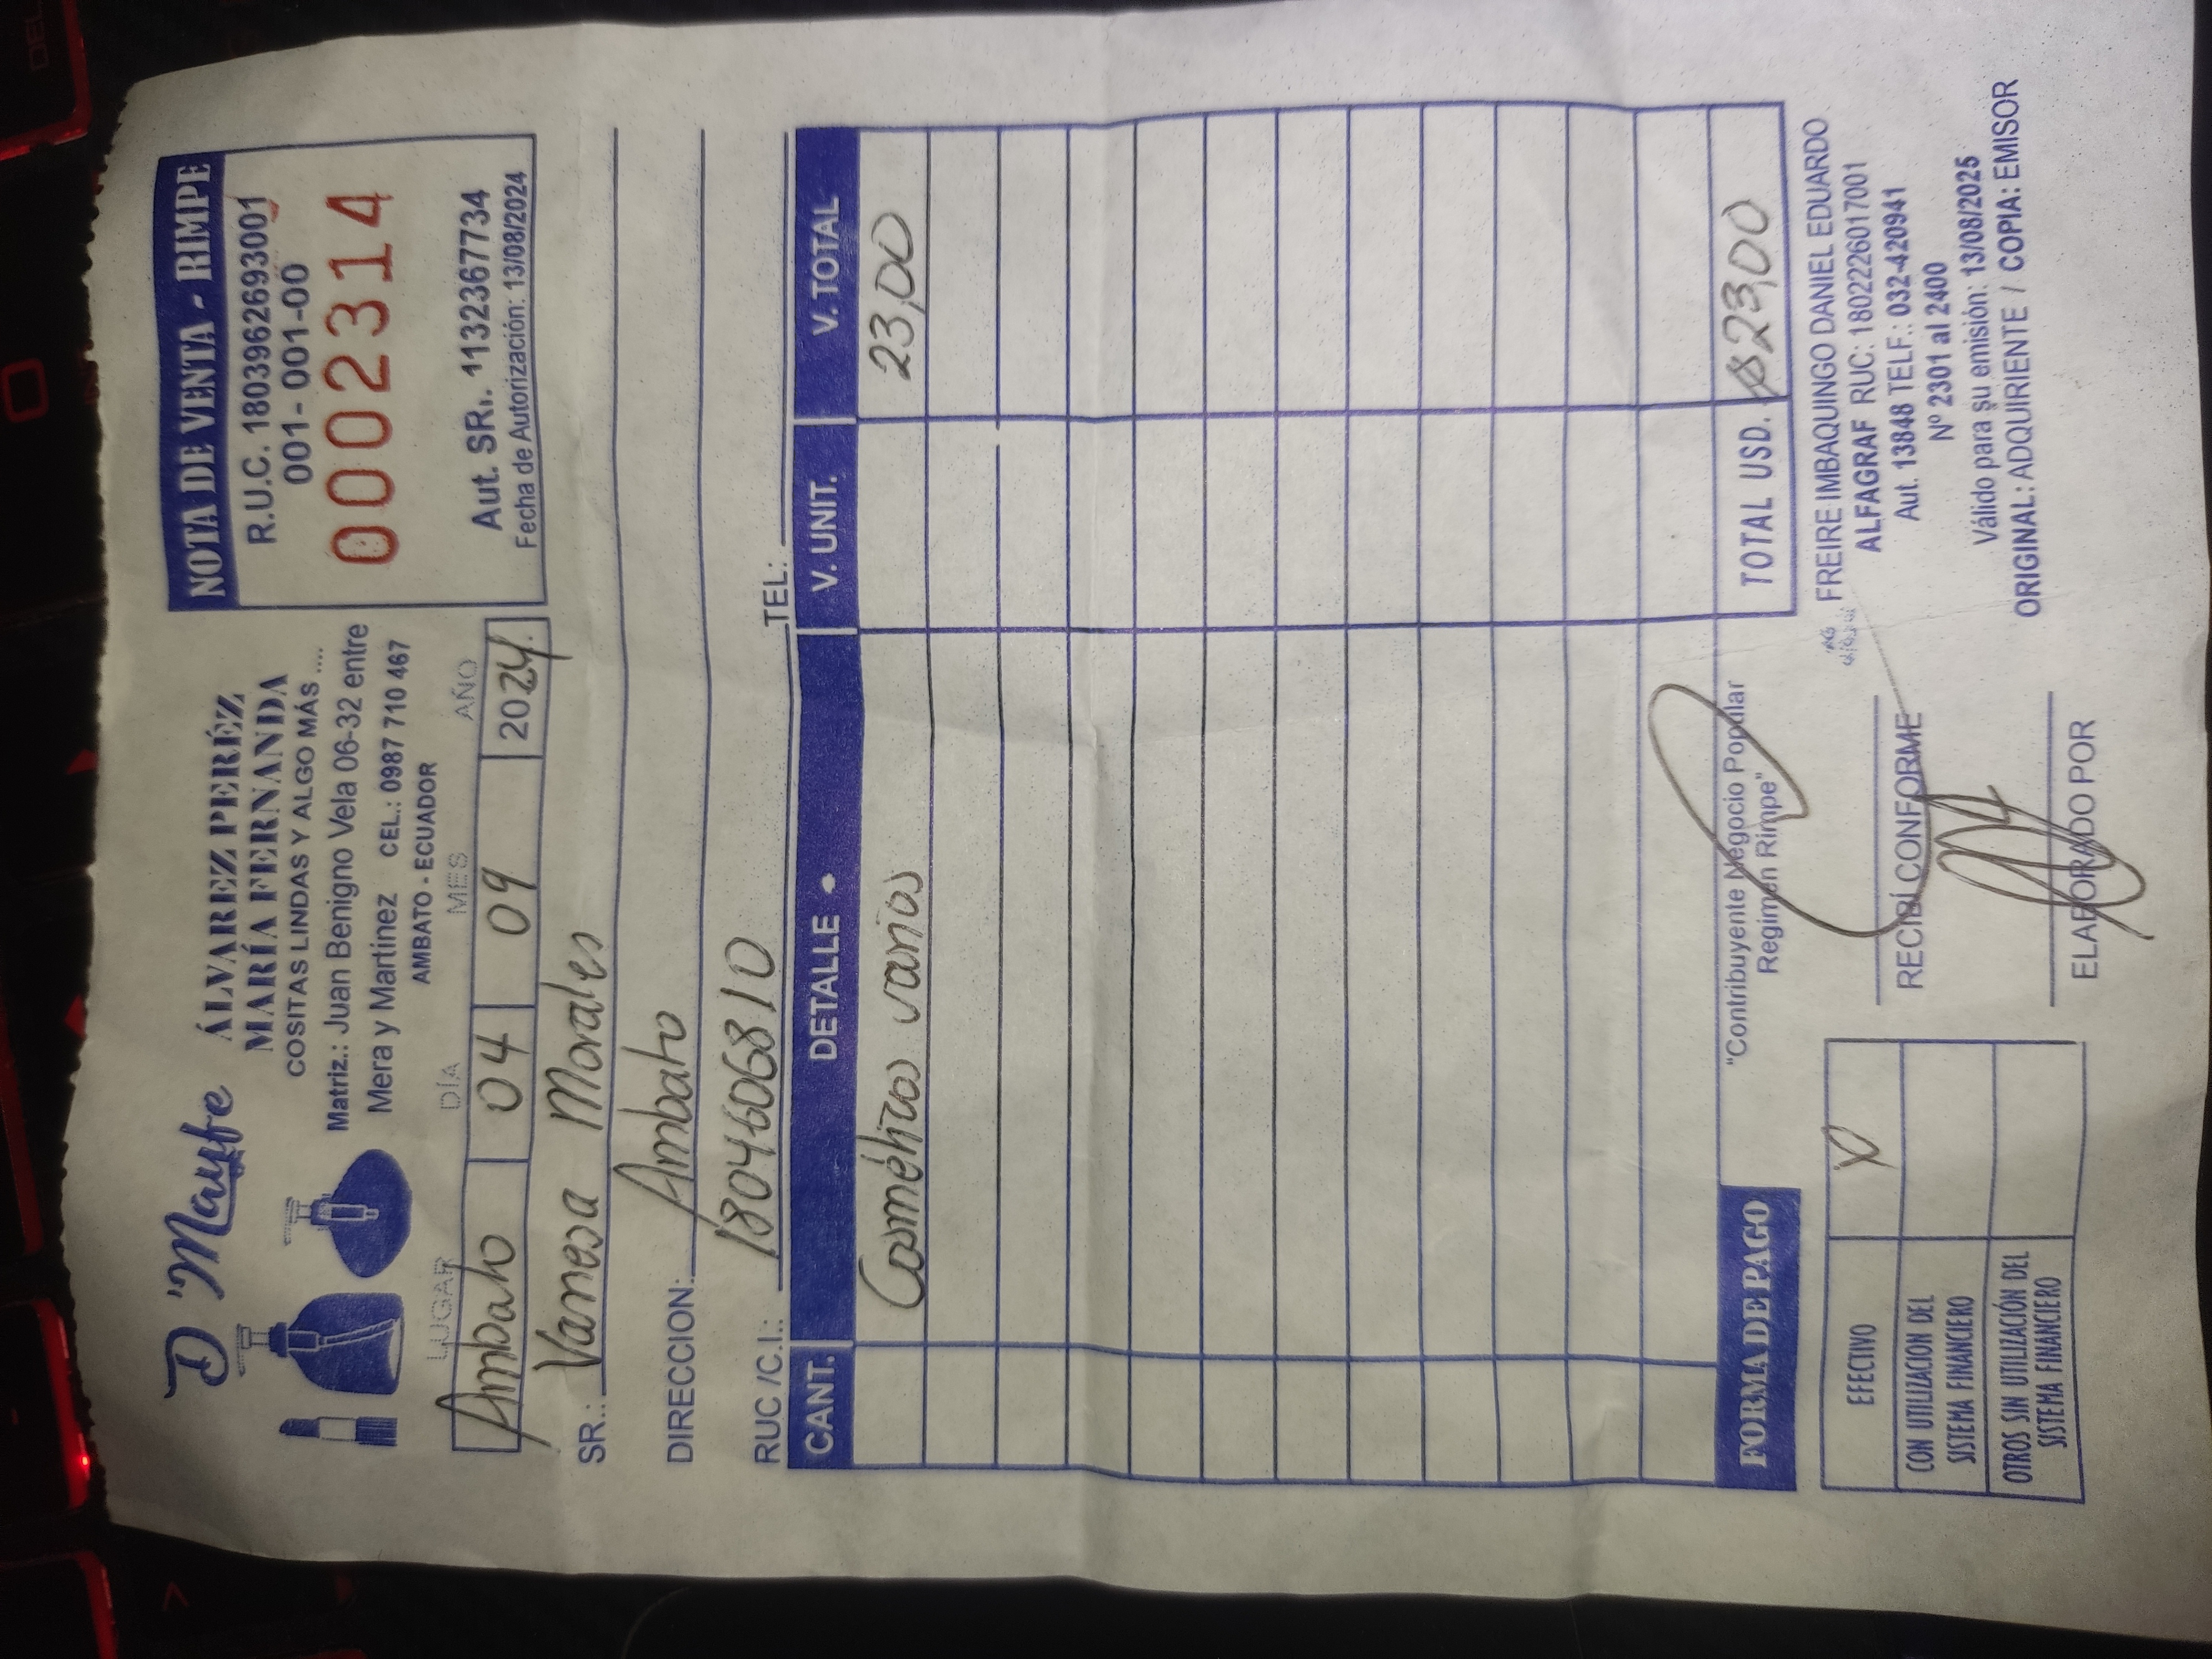 D'Mayfe
ÁLVAREZ PERÉZ
MARÍA FERNANDA
COSITAS LINDAS Y ALGO MÁS ....
Matriz.: Juan Benigno Vela 06-32 entre
Mera y Martinez CEL.: 0987 710 467
AMBATO - ECUADOR
NOTA DE VENTA - RIMPE
R.U.C. 1803962693001
001- 001-00
0002314
Aut. SRI. 1132367734
Fecha de Autorización: 13/08/2024
LUGAR DÍA MES AÑO
Ambato 04 09 2024
SR.: Vanesa Morales
DIRECCION: Ambato
RUC /C.I.: 1804606810 TEL:
CANT. DETALLE V. UNIT. V. TOTAL
Cosméticos varios 23,00
FORMA DE PAGO
"Contribuyente Negocio Popular
Regimen Rimpe"
TOTAL USD. $23,00
EFECTIVO X
CON UTILIZACION DEL
SISTEMA FINANCIERO
OTROS SIN UTILIZACIÓN DEL
SISTEMA FINANCIERO
RECIBÍ CONFORME
ELABORADO POR
FREIRE IMBAQUINGO DANIEL EDUARDO
ALFAGRAF RUC: 1802226017001
Aut. 13848 TELF.: 032-420941
Nº 2301 al 2400
Válido para su emisión: 13/08/2025
ORIGINAL: ADQUIRIENTE / COPIA: EMISOR
DEL